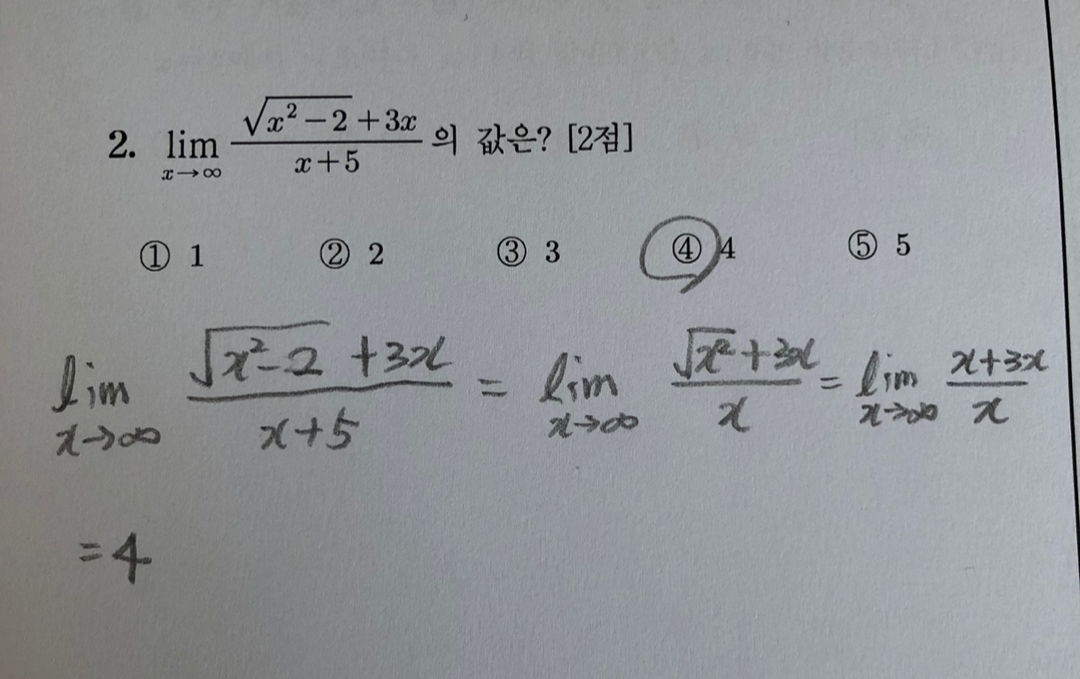 2. lim x→∞ (√(x²−2)+3x)/(x+5) 의 값은? [2점]
① 1 ② 2 ③ 3 ④ 4 ⑤ 5
lim x→∞ (√(x²-2) +3x)/(x+5) = lim x→∞ (√x²+3x)/x = lim x→∞ (x+3x)/x
=4